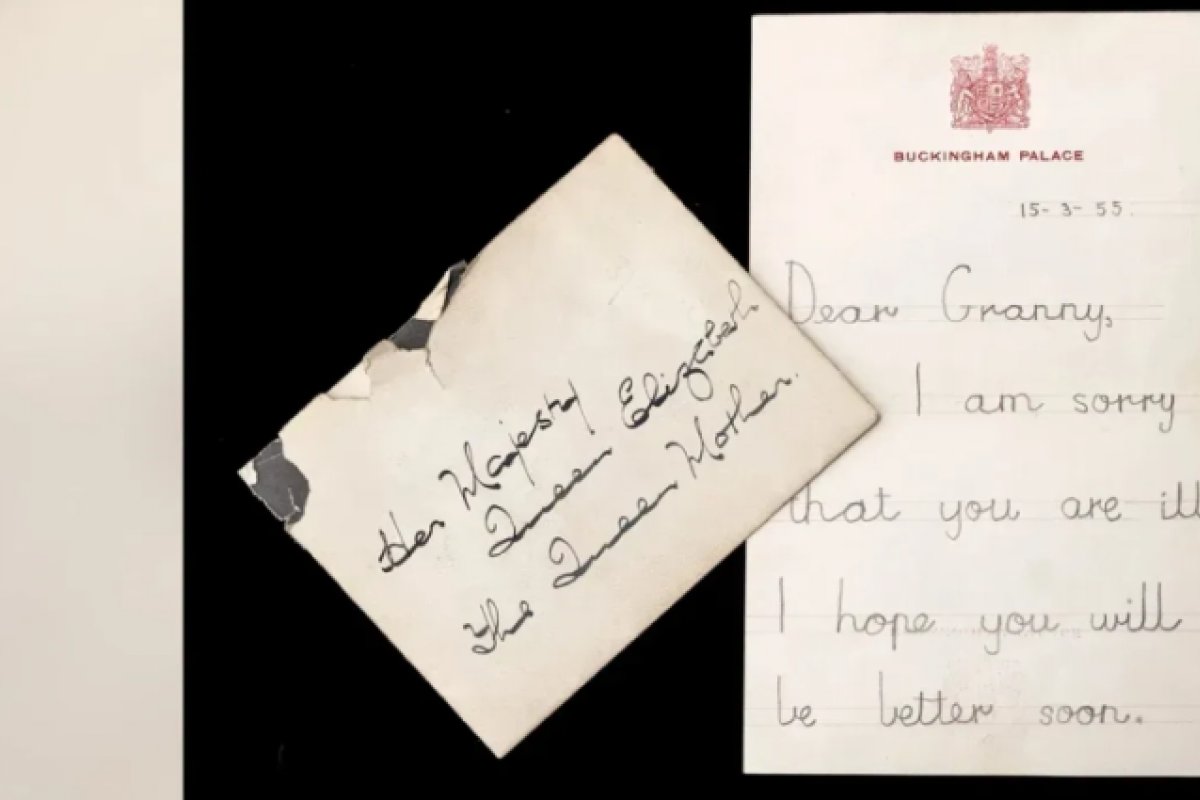 Her Majesty
Queen Elizabeth
The Queen Mother.
BUCKINGHAM PALACE
15-3-55.
Dear Granny,
I am sorry
that you are ill
I hope you will
be better soon.